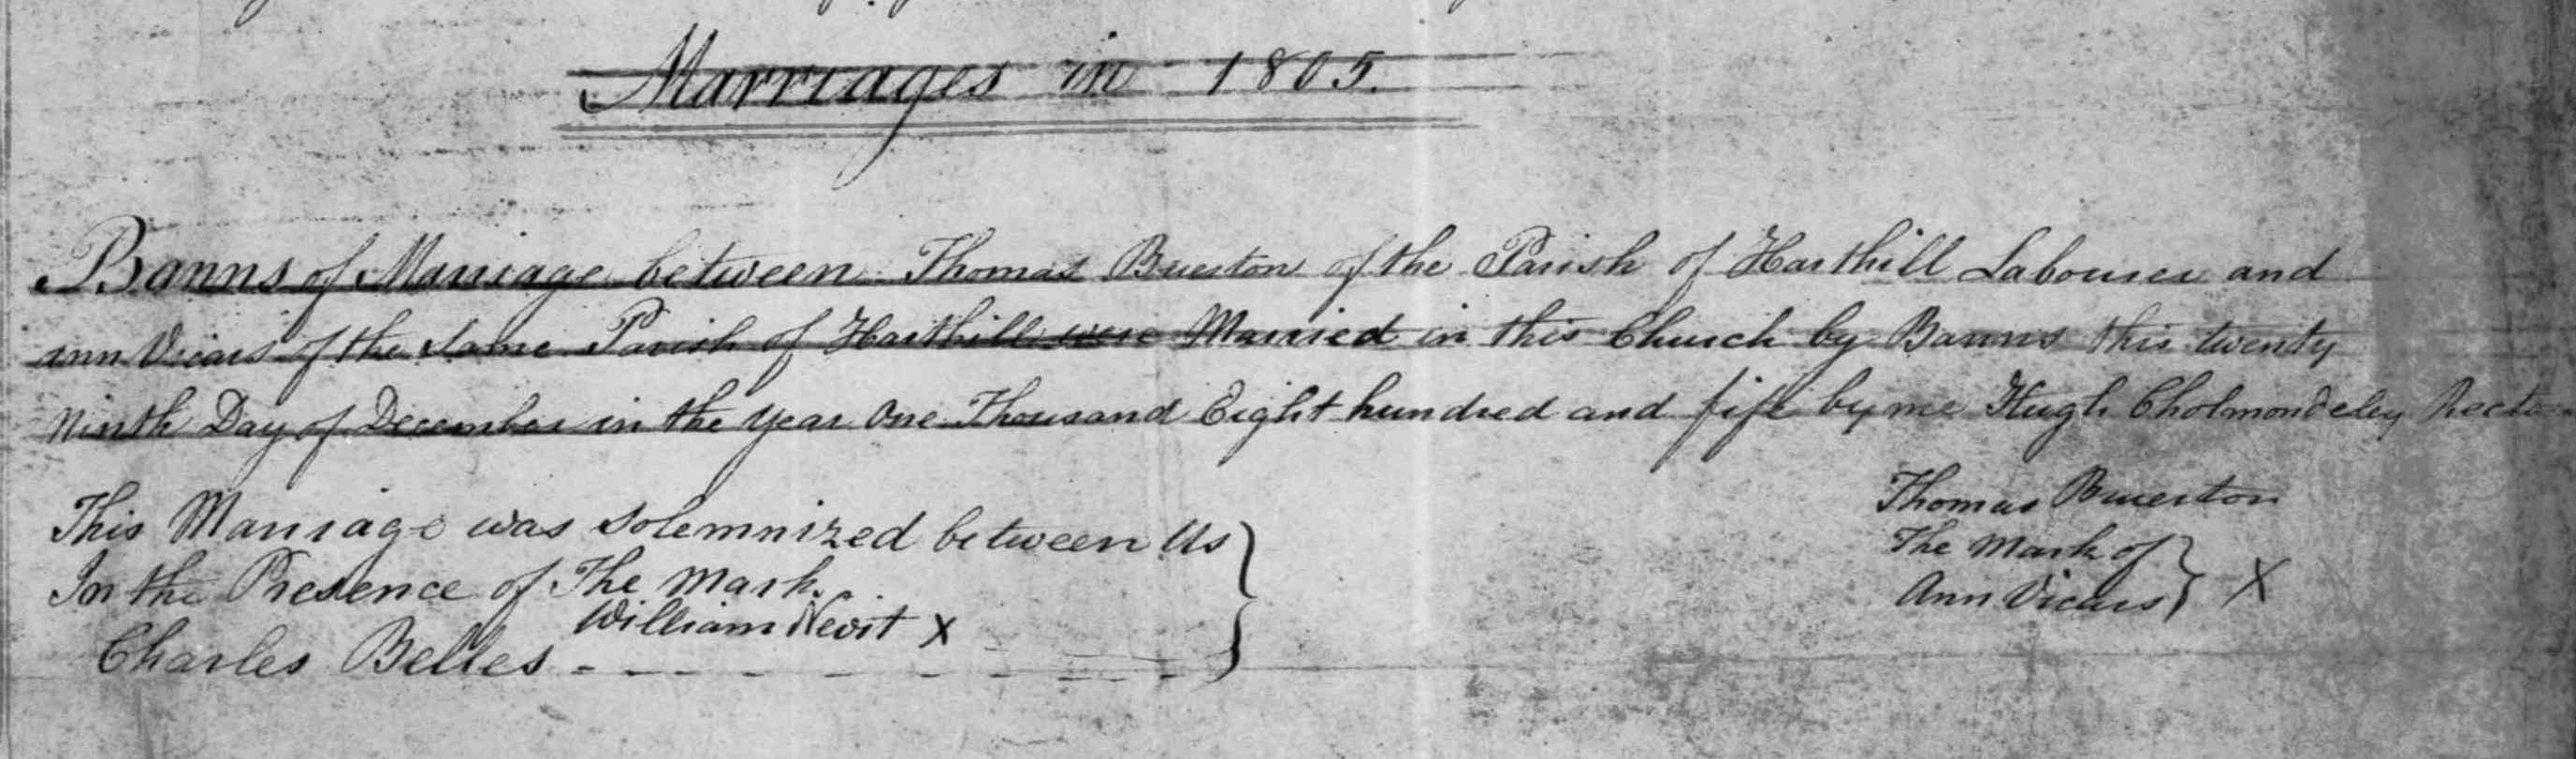 Marriages in 1805.
Banns of Marriage between Thomas Bruerton of the Parish of Harthill Labourer and
ann Vicars of the Same Parish of Harthill were Married in this Church by Banns this twenty
Ninth Day of December in the Year One Thousand Eight hundred and five by me Hugh Cholmondeley Rector
This Marriage was Solemnized between Us
Thomas Bruerton
In the Presence of The Mark
The Mark of
William Nevit X
Ann Vicars X
Charles Belles